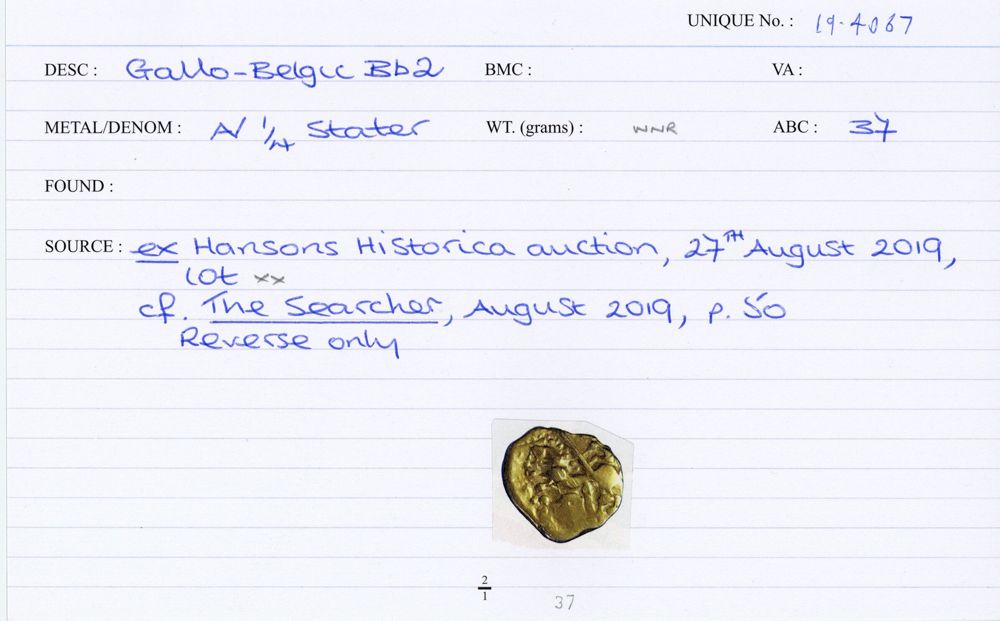 UNIQUE No. : 19-4067
DESC : Gallo-Belgic Bb2 BMC : VA :
METAL/DENOM : AV 1/4 Stater WT. (grams) : WNR ABC : 37
FOUND :
SOURCE : ex Hansons Historica auction, 27TH August 2019,
lot xx
cf. The Searcher, August 2019, p. 50
Reverse only
2/1
37